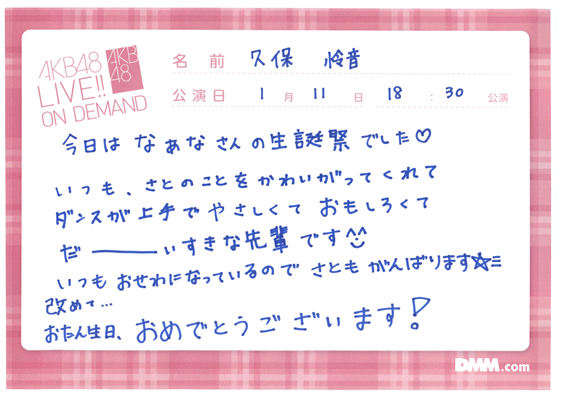 AKB48
LIVE!!
ON DEMAND
AKB
48
名 前 久保 怜音
公演日 1 月 11 日 18 : 30 公演
今日は なぁなさんの生誕祭でした♡
いつも、さとのことをかわいがってくれて
ダンスが上手でやさしくて おもしろくて
だ―――いすきな先輩です^^
いつも おせわになっているので さとも がんばります☆≡
改めて...
おたん生日、おめでとうございます!
DMM.com